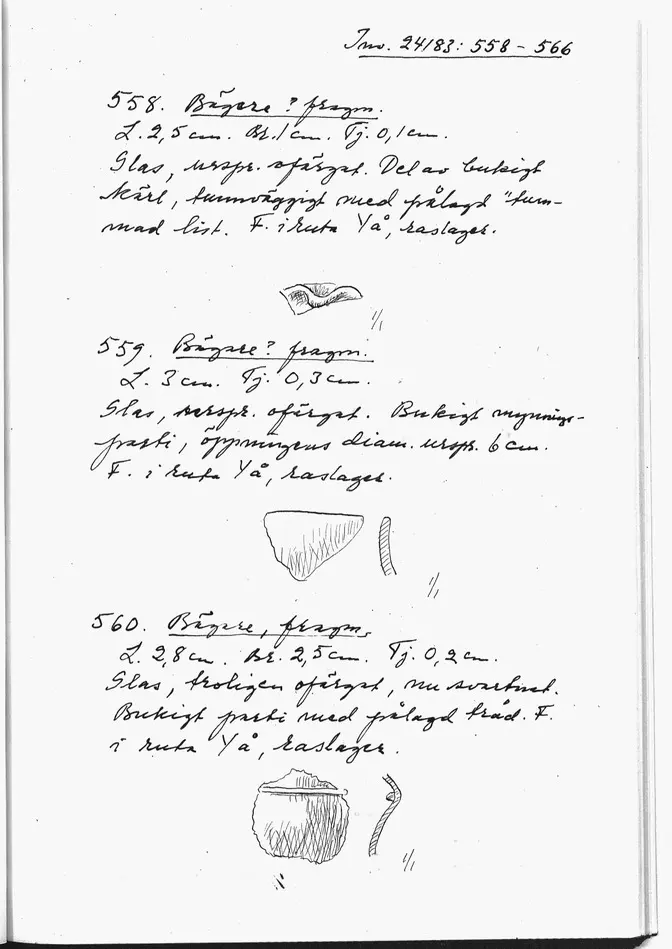 Inv. 24/83: 558 - 566
558. Bägare? fragm.
L. 2,5 cm. Br. 1 cm. Tj. 0,1 cm.
Glas, urspr. ofärgat. Del av bukigt
kärl, tunnväggigt med pålagd "tum-
mad list. F. i ruta Yå, raslager.
1/1
559. Bägare? fragm.
L. 3 cm. Tj. 0,3 cm.
Glas, urspr. ofärgat. Bukigt mynnings-
parti, öppningens diam. urspr. 6 cm.
F. i ruta Yå, raslager.
1/1
560. Bägare, fragm.
L. 2,8 cm. Br. 2,5 cm. Tj. 0,2 cm.
Glas, troligen ofärgat, nu svartnat.
Bukigt parti med pålagd tråd. F.
i ruta Yå, raslager.
1/1